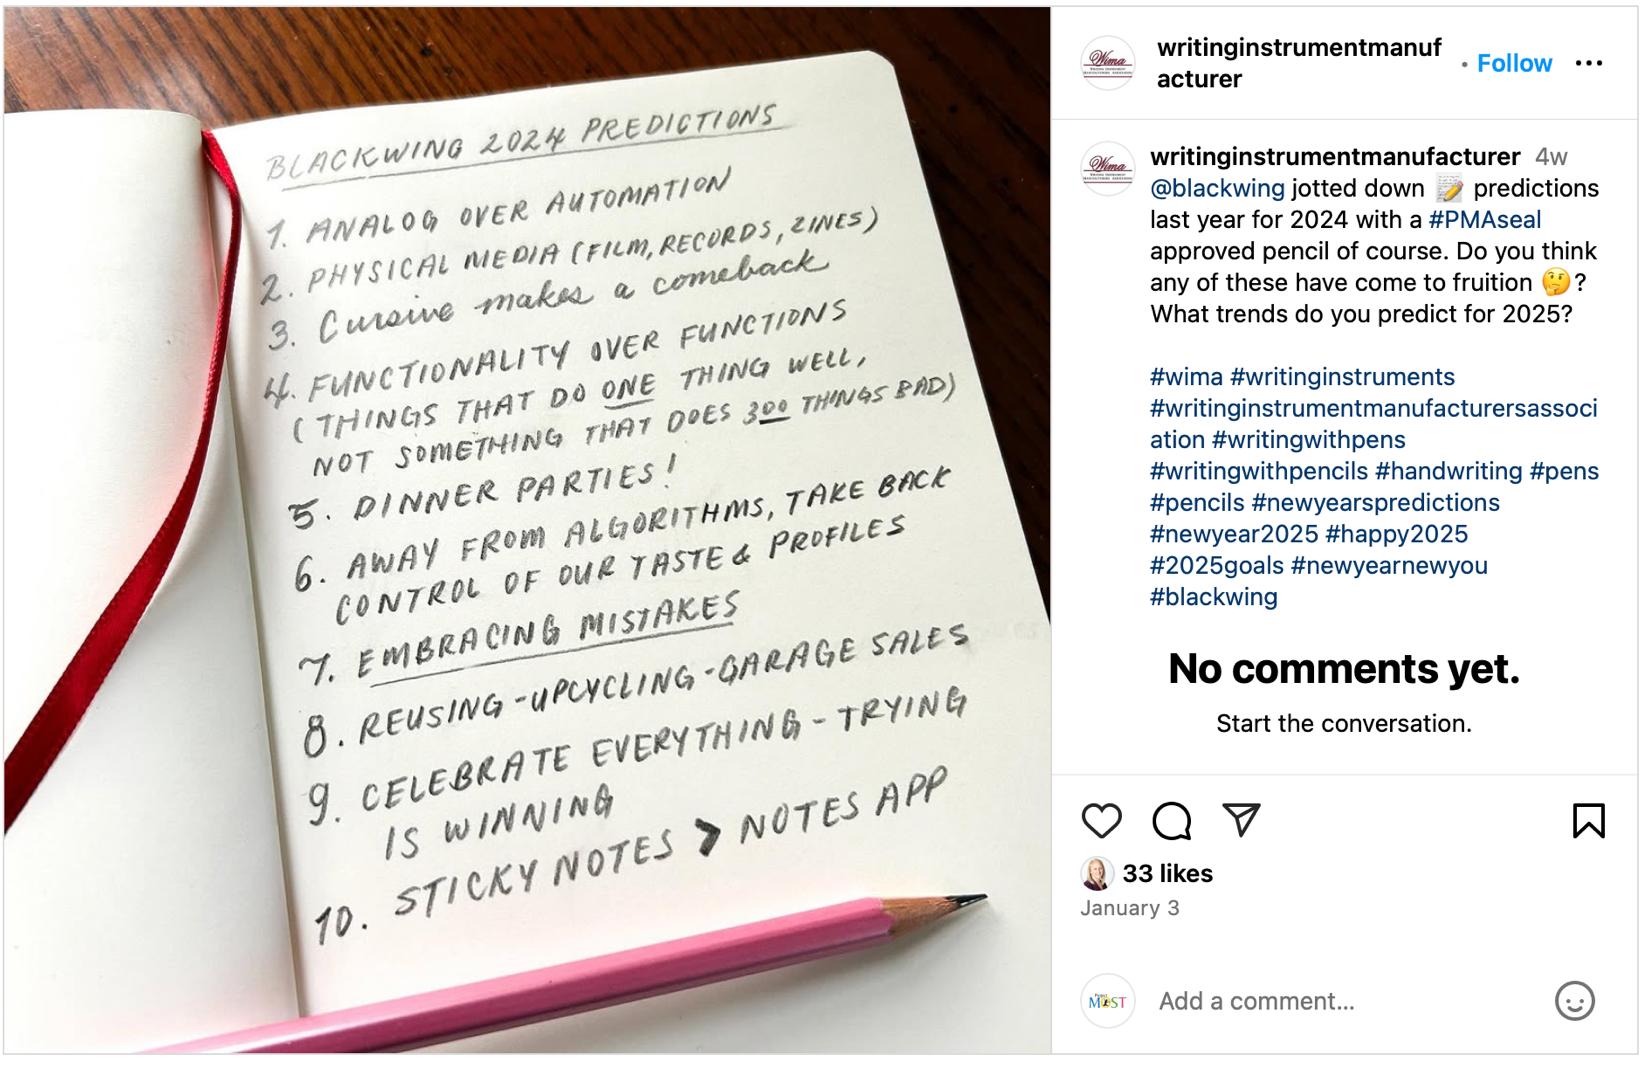 BLACKWING 2024 PREDICTIONS
1. ANALOG OVER AUTOMATION
2. PHYSICAL MEDIA (FILM, RECORDS, ZINES)
3. Cursive makes a comeback
4. FUNCTIONALITY OVER FUNCTIONS
(THINGS THAT DO ONE THING WELL,
NOT SOMETHING THAT DOES 300 THINGS BAD)
5. DINNER PARTIES!
6. AWAY FROM ALGORITHMS, TAKE BACK
CONTROL OF OUR TASTE & PROFILES
7. EMBRACING MISTAKES
8. REUSING-UPCYCLING-GARAGE SALES
9. CELEBRATE EVERYTHING - TRYING
IS WINNING
10. STICKY NOTES > NOTES APP
Wima
writinginstrumentmanuf
acturer
• Follow
Wima
writinginstrumentmanufacturer 4w
@blackwing jotted down 📝 predictions
last year for 2024 with a #PMAseal
approved pencil of course. Do you think
any of these have come to fruition 🤔?
What trends do you predict for 2025?
#wima #writinginstruments
#writinginstrumentmanufacturersassoci
ation #writingwithpens
#writingwithpencils #handwriting #pens
#pencils #newyearspredictions
#newyear2025 #happy2025
#2025goals #newyearnewyou
#blackwing
No comments yet.
Start the conversation.
33 likes
January 3
MOST
Add a comment...